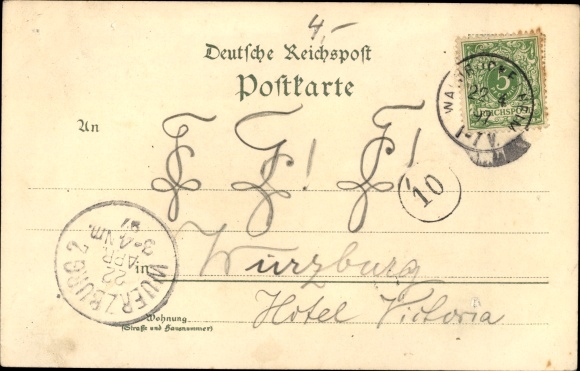 4,-
Deutsche Reichspost
Postkarte
An
F F! F!
in Würzburg
Hotel Victoria
Wohnung
(Straße und Hausnummer)
5
REICHSPOST
22 4
97
1-7 V.
10
WUERZBURG 2
22
APR
97
3-4 Nm.